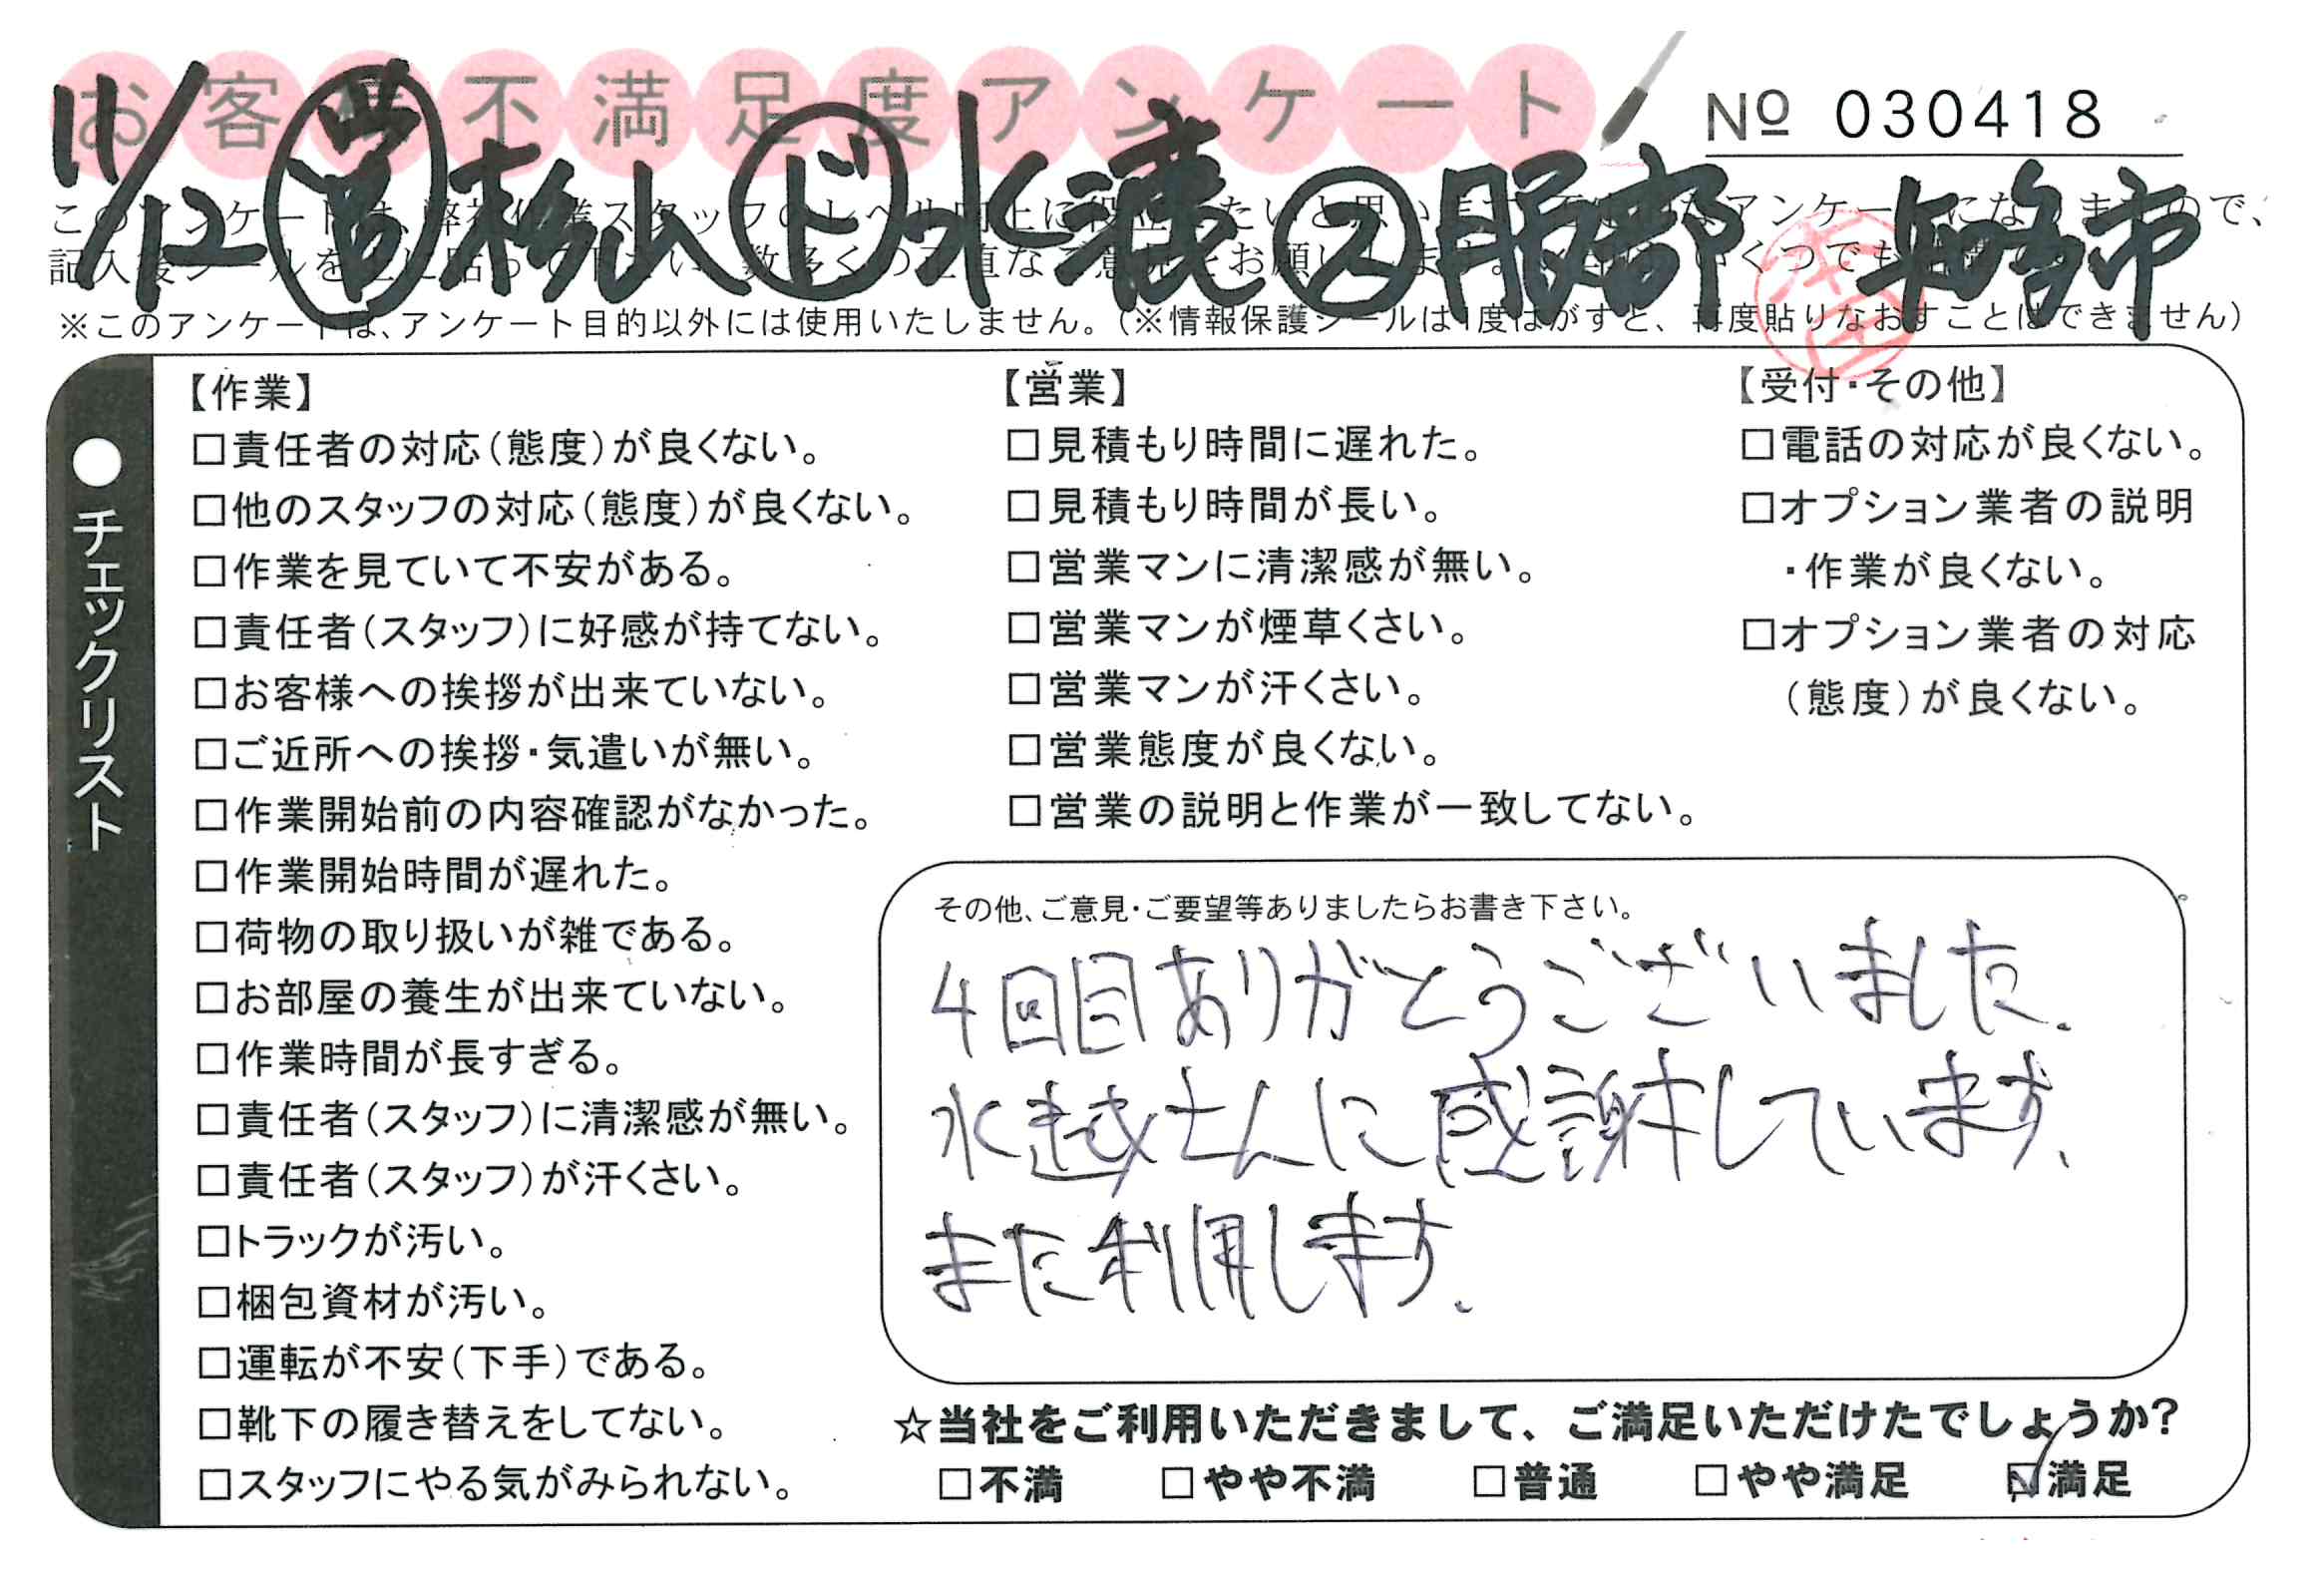 お客様不満足度アンケート
№ 030418
11/12 営 杉山 ド 水越 ス 服部 知多市
※このアンケートは、アンケート目的以外には使用いたしません。(※情報保護シールは1度はがすと、再度貼りなおすことはできません)
●チェックリスト
【作業】
□責任者の対応(態度)が良くない。
□他のスタッフの対応(態度)が良くない。
□作業を見ていて不安がある。
□責任者(スタッフ)に好感が持てない。
□お客様への挨拶が出来ていない。
□ご近所への挨拶・気遣いが無い。
□作業開始前の内容確認がなかった。
□作業開始時間が遅れた。
□荷物の取り扱いが雑である。
□お部屋の養生が出来ていない。
□作業時間が長すぎる。
□責任者(スタッフ)に清潔感が無い。
□責任者(スタッフ)が汗くさい。
□トラックが汚い。
□梱包資材が汚い。
□運転が不安(下手)である。
□靴下の履き替えをしてない。
□スタッフにやる気がみられない。
【営業】
□見積もり時間に遅れた。
□見積もり時間が長い。
□営業マンに清潔感が無い。
□営業マンが煙草くさい。
□営業マンが汗くさい。
□営業態度が良くない。
□営業の説明と作業が一致してない。
【受付・その他】
□電話の対応が良くない。
□オプション業者の説明
・作業が良くない。
□オプション業者の対応
(態度)が良くない。
その他、ご意見・ご要望等ありましたらお書き下さい。
4回目ありがとうございました.
水越さんに感謝しています.
また利用します.
☆当社をご利用いただきまして、ご満足いただけたでしょうか?
□不満 □やや不満 □普通 □やや満足 ☑満足